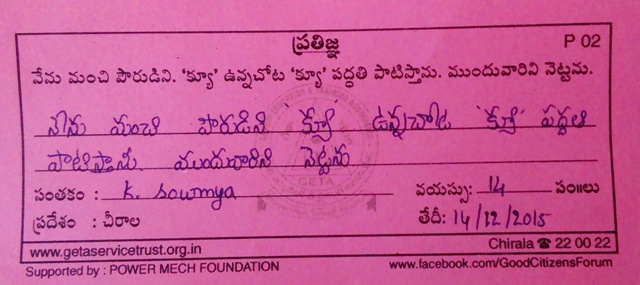 ప్రతిజ్ఞ P 02
నేను మంచి పౌరుడిని. 'క్యూ' ఉన్నచోట 'క్యూ' పద్ధతి పాటిస్తాను. ముందువారిని నెట్టను.
నేను మంచి పౌరుడిని 'క్యూ' ఉన్నచోట 'క్యూ' పద్ధతి
పాటిస్తాను. ముందువారిని నెట్టను
సంతకం : K. Sowmya వయస్సు: 14 సం॥లు
ప్రదేశం : చీరాల తేదీ: 14/12/2015
www.getaservicetrust.org.in Chirala ☎ 22 00 22
Supported by : POWER MECH FOUNDATION www.facebook.com/GoodCitizensForum
GETA